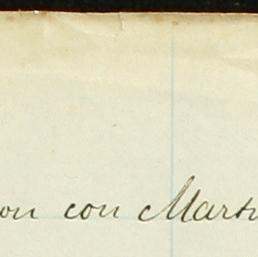 on con Mart